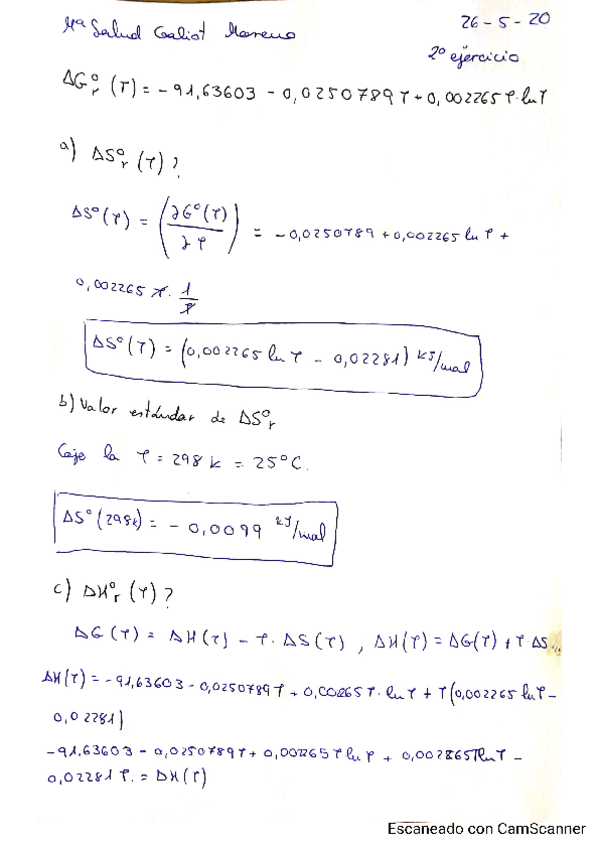 Mª Salud Galiot Moreno
26-5-20
2º ejercicio
ΔGrº(T) = -91,63603 - 0,0250789T + 0,002265 T·lnT
a) ΔSrº(T)?
ΔSº(T) = (∂Gº(T)/∂T) = -0,0250789 + 0,002265 ln T +
0,002265 T · 1/T
ΔSº(T) = (0,002265 ln T - 0,02281) kJ/mol
b) Valor estándar de ΔSrº
Coje la T = 298 k = 25ºC.
ΔSº(298k) = -0,0099 kJ/mol
c) ΔHrº(T)?
ΔG(T) = ΔH(T) - T·ΔS(T), ΔH(T) = ΔG(T) + T·ΔS...
ΔH(T) = -91,63603 - 0,0250789T + 0,002265T·lnT + T(0,002265 lnT -
0,02281)
-91.63603 - 0,0250789T + 0,002265T lnT + 0,002265TlnT -
0,02281 T. = ΔH(T)
Escaneado con CamScanner